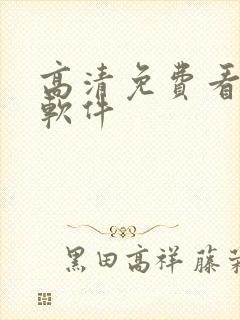 高清免费看
軟件
黑田高祥 藤